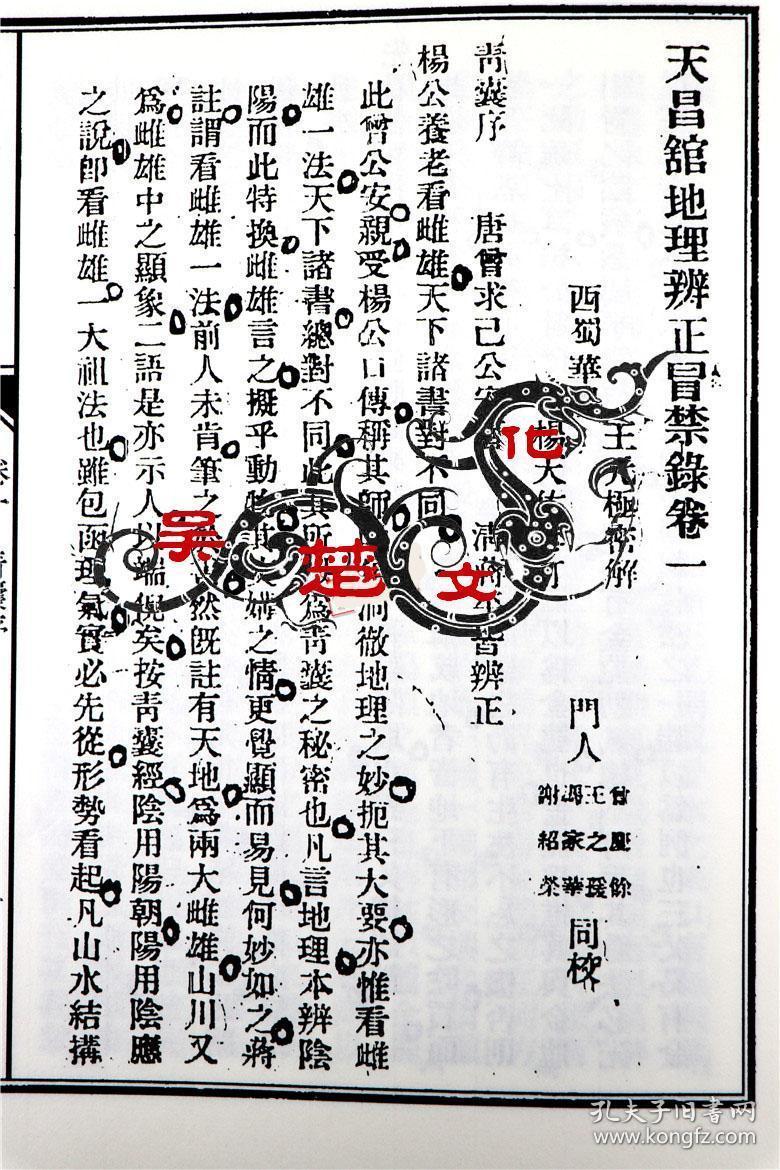 天昌舘地理辨正冒禁錄卷一
王元極 解
西蜀華 楊天
門人
曾慶餘
王之
馮家華
謝紹榮
同校
青囊序 唐曾求己公 辨正
楊公養老看雌雄天下諸書對不同
此曾公安親受楊公口傳稱其師 洞徹地理之妙扼其大要亦惟看雌
雄一法天下諸書總對不同此其所 爲青囊之秘密也凡言地理本辨陰
陽而此特換雌雄言之擬乎動物 媾之情更覺顯而易見何妙如之蔣
註謂看雌雄一法前人未肯筆之 然既註有天地爲兩大雌雄山川又
爲雌雄中之顯象二語是亦示人以端倪矣按青囊經陰用陽朝陽用陰應
之說卽看雌雄一大祖法也雖包函理氣實必先從形勢看起凡山水結搆
卷一 青囊序
吴楚文化
孔夫子旧书网
www.kongfz.com